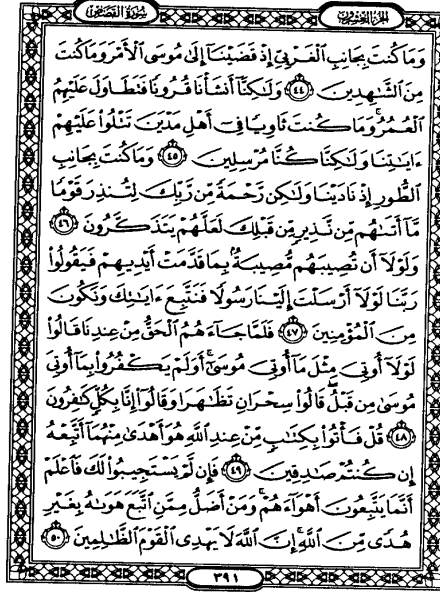 الجزء العشرون
سورة القصص
وَمَا كُنتَ بِجَانِبِ ٱلْغَرْبِىِّ إِذْ قَضَيْنَآ إِلَىٰ مُوسَى ٱلْأَمْرَ وَمَا كُنتَ
مِنَ ٱلشَّٰهِدِينَ ٤٤ وَلَٰكِنَّآ أَنشَأْنَا قُرُونًا فَتَطَاوَلَ عَلَيْهِمُ
ٱلْعُمُرُ وَمَا كُنتَ ثَاوِيًا فِىٓ أَهْلِ مَدْيَنَ تَتْلُوا۟ عَلَيْهِمْ
ءَايَٰتِنَا وَلَٰكِنَّا كُنَّا مُرْسِلِينَ ٤٥ وَمَا كُنتَ بِجَانِبِ
ٱلطُّورِ إِذْ نَادَيْنَا وَلَٰكِن رَّحْمَةً مِّن رَّبِّكَ لِتُنذِرَ قَوْمًا
مَّآ أَتَىٰهُم مِّن نَّذِيرٍ مِّن قَبْلِكَ لَعَلَّهُمْ يَتَذَكَّرُونَ ٤٦
وَلَوْلَآ أَن تُصِيبَهُم مُّصِيبَةٌۢ بِمَا قَدَّمَتْ أَيْدِيهِمْ فَيَقُولُوا۟
رَبَّنَا لَوْلَآ أَرْسَلْتَ إِلَيْنَا رَسُولًا فَنَتَّبِعَ ءَايَٰتِكَ وَنَكُونَ
مِنَ ٱلْمُؤْمِنِينَ ٤٧ فَلَمَّا جَآءَهُمُ ٱلْحَقُّ مِنْ عِندِنَا قَالُوا۟
لَوْلَآ أُوتِىَ مِثْلَ مَآ أُوتِىَ مُوسَىٰٓ ۚ أَوَلَمْ يَكْفُرُوا۟ بِمَآ أُوتِىَ
مُوسَىٰ مِن قَبْلُ ۖ قَالُوا۟ سِحْرَانِ تَظَٰهَرَا وَقَالُوٓا۟ إِنَّا بِكُلٍّ كَٰفِرُونَ
٤٨ قُلْ فَأْتُوا۟ بِكِتَٰبٍ مِّنْ عِندِ ٱللَّهِ هُوَ أَهْدَىٰ مِنْهُمَآ أَتَّبِعْهُ
إِن كُنتُمْ صَٰدِقِينَ ٤٩ فَإِن لَّمْ يَسْتَجِيبُوا۟ لَكَ فَٱعْلَمْ
أَنَّمَا يَتَّبِعُونَ أَهْوَآءَهُمْ ۚ وَمَنْ أَضَلُّ مِمَّنِ ٱتَّبَعَ هَوَىٰهُ بِغَيْرِ
هُدًى مِّنَ ٱللَّهِ ۚ إِنَّ ٱللَّهَ لَا يَهْدِى ٱلْقَوْمَ ٱلظَّٰلِمِينَ ٥٠
٣٩١